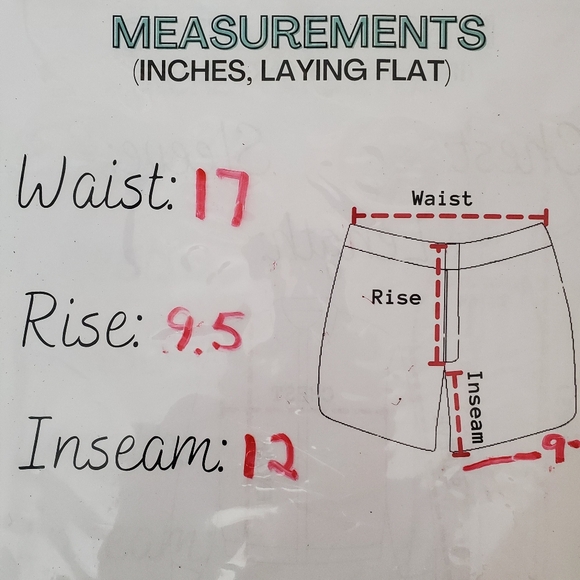 MEASUREMENTS
(INCHES, LAYING FLAT)
Waist: 17
Rise: 9.5
Inseam: 12
Waist
Rise
Inseam
9-